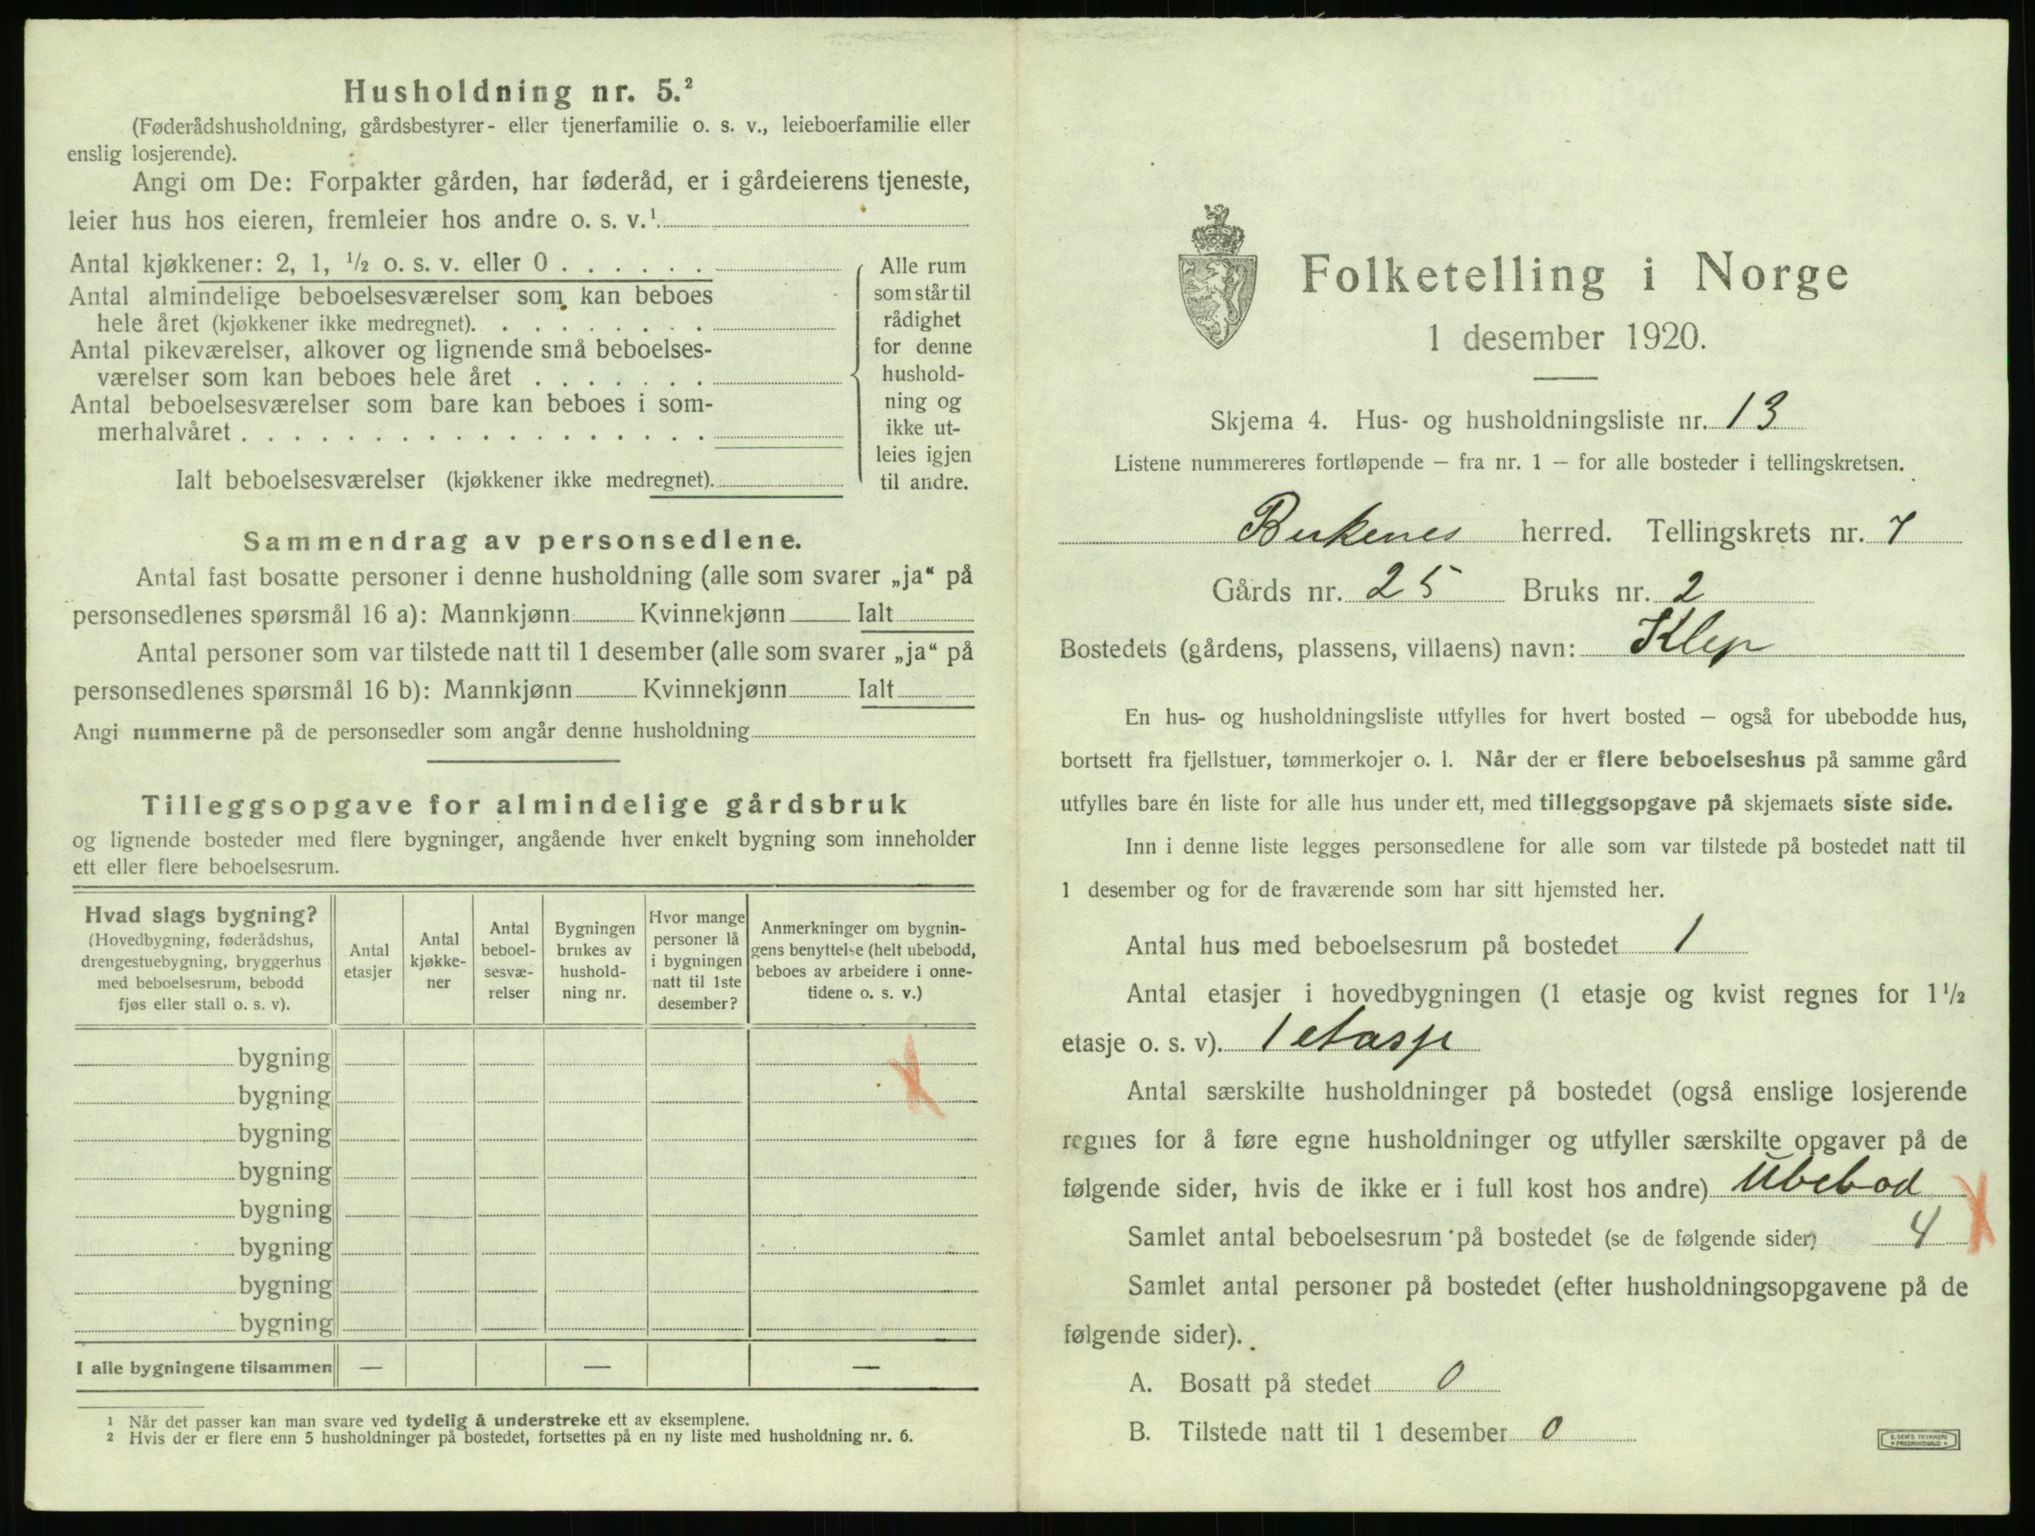 Husholdning nr. 5.²
(Føderådshusholdning, gårdsbestyrer- eller tjenerfamilie o. s. v., leieboerfamilie eller
enslig losjerende).
Angi om De: Forpakter gården, har føderåd, er i gårdeierens tjeneste,
leier hus hos eieren, fremleier hos andre o. s. v.¹
Antal kjøkkener: 2, 1, ½ o. s. v. eller 0
Antal almindelige beboelsesværelser som kan beboes
hele året (kjøkkener ikke medregnet).
Antal pikeværelser, alkover og lignende små beboelses-
værelser som kan beboes hele året
Antal beboelsesværelser som bare kan beboes i som-
merhalvåret
Alle rum
som står til
rådighet
for denne
hushold-
ning og
ikke ut-
leies igjen
til andre.
Ialt beboelsesværelser (kjøkkener ikke medregnet).
Sammendrag av personsedlene.
Antal fast bosatte personer i denne husholdning (alle som svarer „ja“ på
personsedlenes spørsmål 16 a): Mannkjønn Kvinnekjønn Ialt
Antal personer som var tilstede natt til 1 desember (alle som svarer „ja“ på
personsedlenes spørsmål 16 b): Mannkjønn Kvinnekjønn Ialt
Angi nummerne på de personsedler som angår denne husholdning
Tilleggsopgave for almindelige gårdsbruk
og lignende bosteder med flere bygninger, angående hver enkelt bygning som inneholder
ett eller flere beboelsesrum.
Hvad slags bygning?
(Hovedbygning, føderådshus,
drengestuebygning, bryggerhus
med beboelsesrum, bebodd
fjøs eller stall o. s. v).
Antal
etasjer
Antal
kjøkke-
ner
Antal
beboel-
sesvæ-
relser
Bygningen
brukes av
hushold-
ning nr.
Hvor mange
personer lå
i bygningen
natt til 1ste
desember?
Anmerkninger om bygnin-
gens benyttelse (helt ubebodd,
beboes av arbeidere i onne-
tidene o. s. v.)
bygning
bygning
bygning
bygning
bygning
bygning
bygning
bygning
I alle bygningene tilsammen — — —
¹ Når det passer kan man svare ved tydelig å understreke ett av eksemplene.
² Hvis der er flere enn 5 husholdninger på bostedet, fortsettes på en ny liste med husholdning nr. 6.
Folketelling i Norge
1 desember 1920.
Skjema 4. Hus- og husholdningsliste nr. 13
Listene nummereres fortløpende – fra nr. 1 – for alle bosteder i tellingskretsen.
Birkenes herred. Tellingskrets nr. 7
Gårds nr. 25 Bruks nr. 2
Bostedets (gårdens, plassens, villaens) navn: Klep
En hus- og husholdningsliste utfylles for hvert bosted – også for ubebodde hus,
bortsett fra fjellstuer, tømmerkojer o. l. Når der er flere beboelseshus på samme gård
utfylles bare én liste for alle hus under ett, med tilleggsopgave på skjemaets siste side.
Inn i denne liste legges personsedlene for alle som var tilstede på bostedet natt til
1 desember og for de fraværende som har sitt hjemsted her.
Antal hus med beboelsesrum på bostedet 1
Antal etasjer i hovedbygningen (1 etasje og kvist regnes for 1½
etasje o. s. v). 1 etasje
Antal særskilte husholdninger på bostedet (også enslige losjerende
regnes for å føre egne husholdninger og utfyller særskilte opgaver på de
følgende sider, hvis de ikke er i full kost hos andre) Ubebod
Samlet antal beboelsesrum på bostedet (se de følgende sider) 4
Samlet antal personer på bostedet (efter husholdningsopgavene på de
følgende sider).
A. Bosatt på stedet 0
B. Tilstede natt til 1 desember 0
E. SEM'S TRYKKERI
FREDRIKSHALD